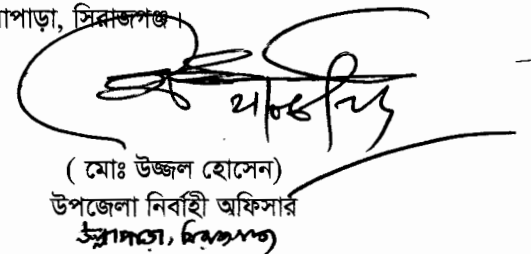 াপাড়া, সিরাজগঞ্জ।
( মোঃ উজ্জল হোসেন)
উপজেলা নির্বাহী অফিসার
উল্লাপাড়া, সিরাজগঞ্জ